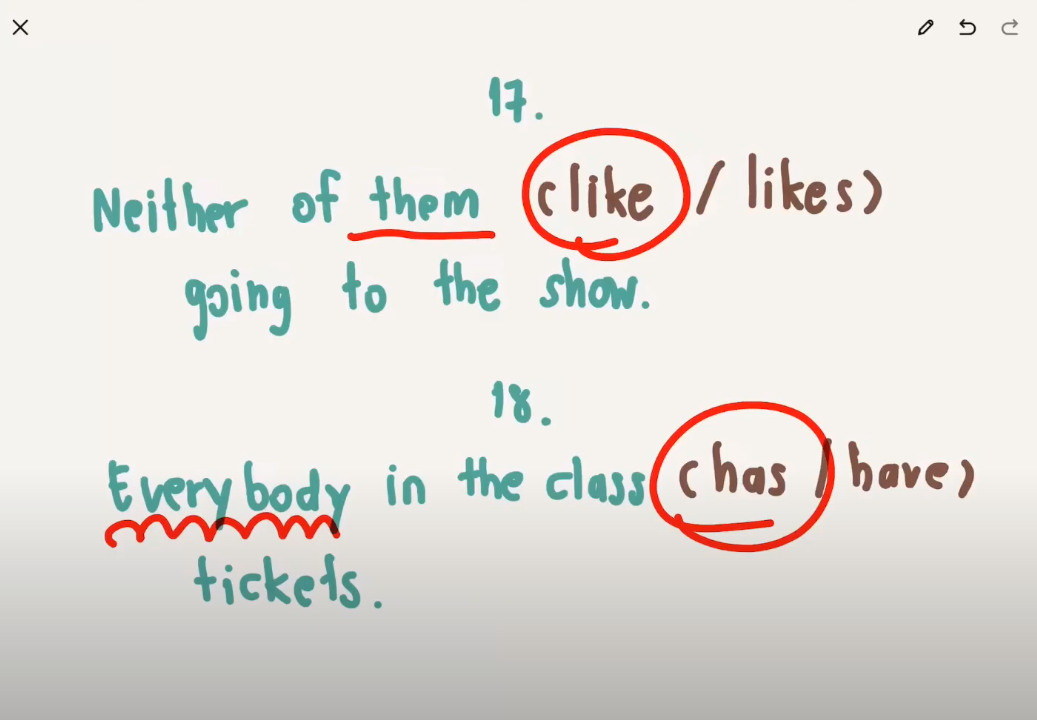 17.
Neither of them (like / likes)
going to the show.
18.
Everybody in the class (has / have)
tickets.